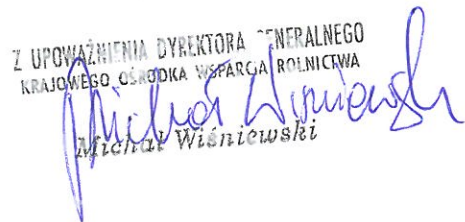 Z UPOWAŻNIENIA DYREKTORA GENERALNEGO
KRAJOWEGO OŚRODKA WSPARCIA ROLNICTWA
Michał Wiśniewski
Michał Wiśniewski